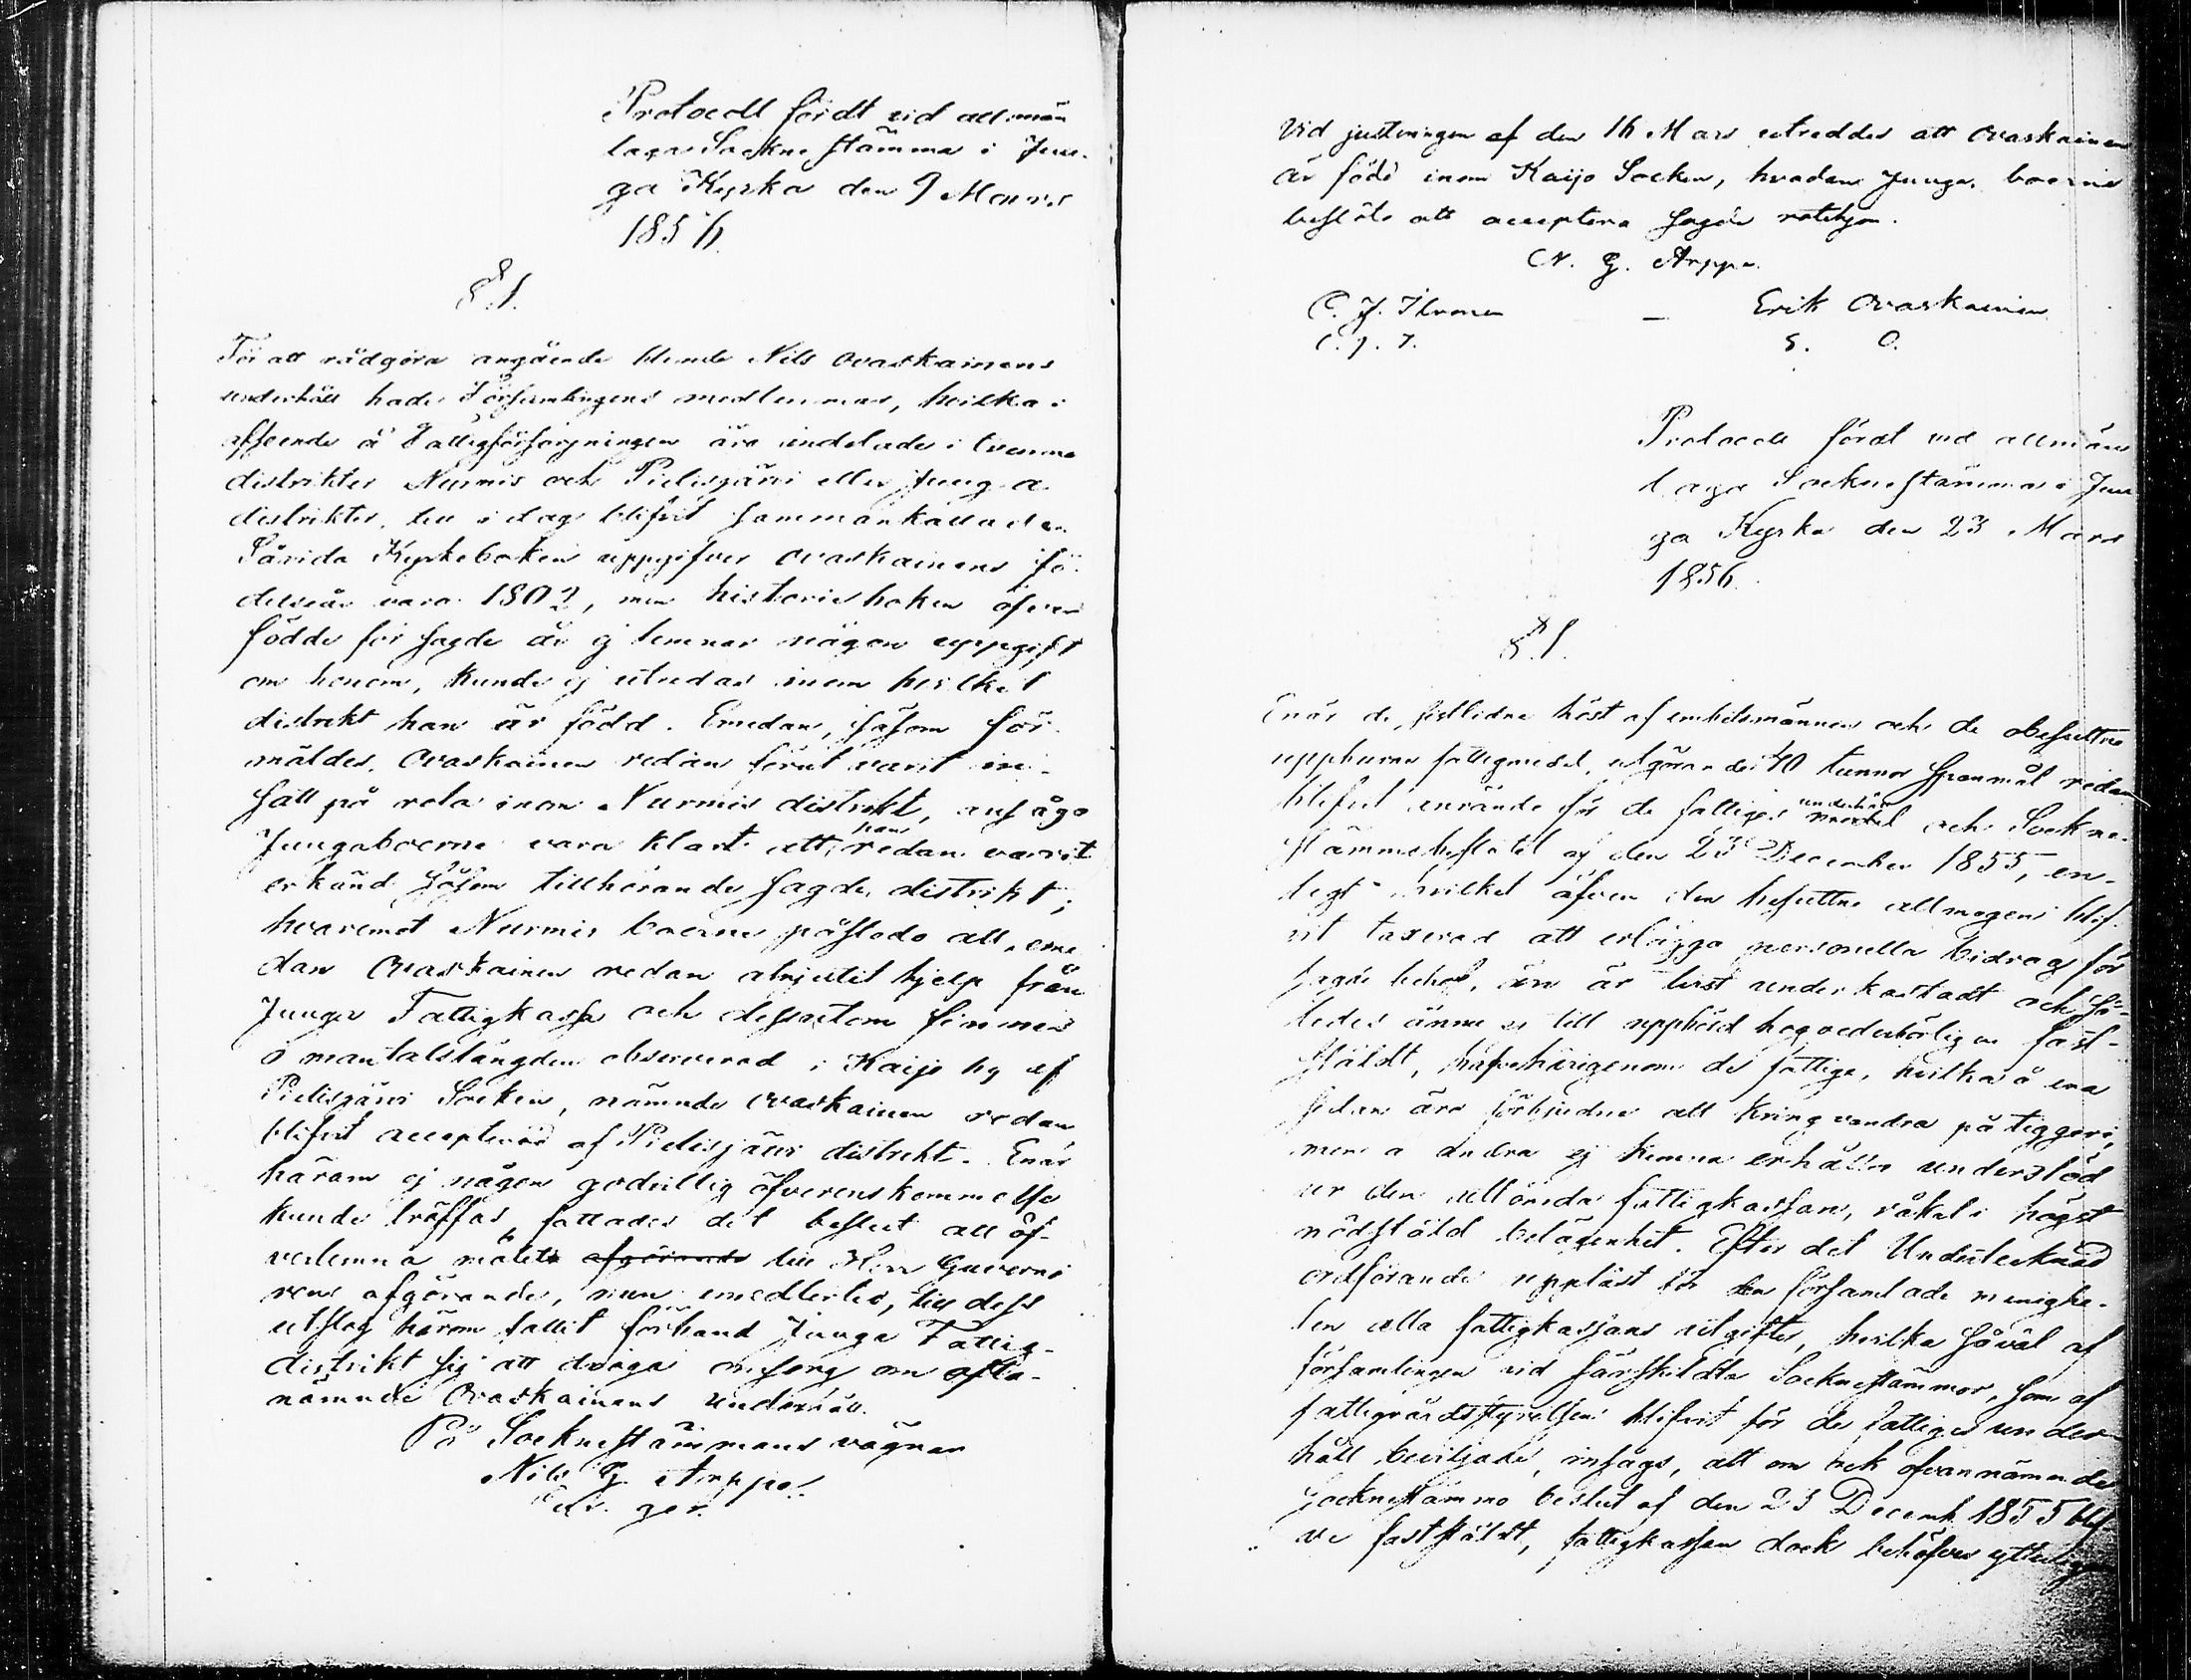 Protocoll fördt vid allmän
laga Sockne stämma i Juu-
ga Kyrka den 9 Mars
1856.
§.1.
För att rådgöra angående blinde Nils Ovaskainens
underhåll hade Församlingens medlemmar, hvilka i
afseende å Fattigförsörjningen äro indelade i tvenne
distrikter Nurmis och Pielisjärvi eller Juuga
distrikter, till i dag blifvit sammankallade.
Såvida Kyrkeboken uppgifver Ovaskainens fö-
delseår vara 1802, men historieboken öfver
födde för sagde år ej lemnar någon uppgift
om honom, kunde ej utredas inom hvilket
distrikt han är född. Emedan, såsom för-
mäldes, Ovaskainen redan förut varit in-
satt på rota inom Nurmis distrikt, ansågo
Juugaboerne vara klart att hans redan varit
erkänd såsom tillhörande sagde distrikt;
hvaremot Nurmis boerne påstodo att, eme-
dan Ovaskainen redan åtnjutit hjelp från
Juuga Fattigkassa och dessutom finnes
i mantalslängden observerad i Kaijo by af
Pielisjärvi Socken, nämnde Ovaskainen redan
blifvit accepterad af Pielisjärvi distrikt. Enär
härom ej någon godvillig öfverenskommelse
kunde träffas, fattades det beslut att öf-
verlemna målets afgörande till Herr Guvernö-
rens afgörande, men emedlertid, till dess
utslag härom fallit förband Juuga Fattig-
distrikt sig att draga omsorg om ofta-
nämnde Ovaskainens underhåll.
På Socknestämmans vägnar
Nils G. Arppe.
Vid justeringen af den 16 Mars utreddes att Ovaskainen
är född inom Kaijo Socken, hvadan Juuga boerne
beslöto att acceptera sagde rotehjon.
N. G. Arppe.
C. J. Ikonen — Erik Ovaskainen
C. J. I. E. O.
Protocoll fördt vid allmän
laga Sockne stämma i Juu
ga Kyrka den 23 Mars
1856.
§.1.
Enär de, sistlidne höst af embetsmännen och de obesuttne
uppburne fattigmedel, utgörande 40 tunnor spanmål redan
blifvit använde för de fattiges underhåll och Sockne-
stämmobeslutet af den 23 December 1855, en-
ligt hvilket äfven den besuttne allmogen blif-
vit taxerad att erlägga personella bidrag för
sagde behof, än är tvist underkastadt och så-
ledes ännu ej till uppbörd högvederbörligen fast-
stäldt, hafva härigenom de fattige, hvilka å ena
sidan äro förbjudne att kringvandra på tiggeri,
men å andra ej kunna erhålla understöd
ur den uttömda fattigkassan, råkat i högst
nödstäld belägenhet. Efter det Undertecknad
ordförande uppläst för den församlade menighe-
ten alla fattigkassans utgifter, hvilka såväl af
församlingen vid särskildta Socknestämmor, som af
fattigvårdsstyrelsen blifvit för de fattiges under-
håll beviljade, insågs, att om ock ofvannämnde
Socknestämmo beslut af den 23 Decemb. 1855 blef
ve fastställdt, fattigkassan dock behöfver ytterligare